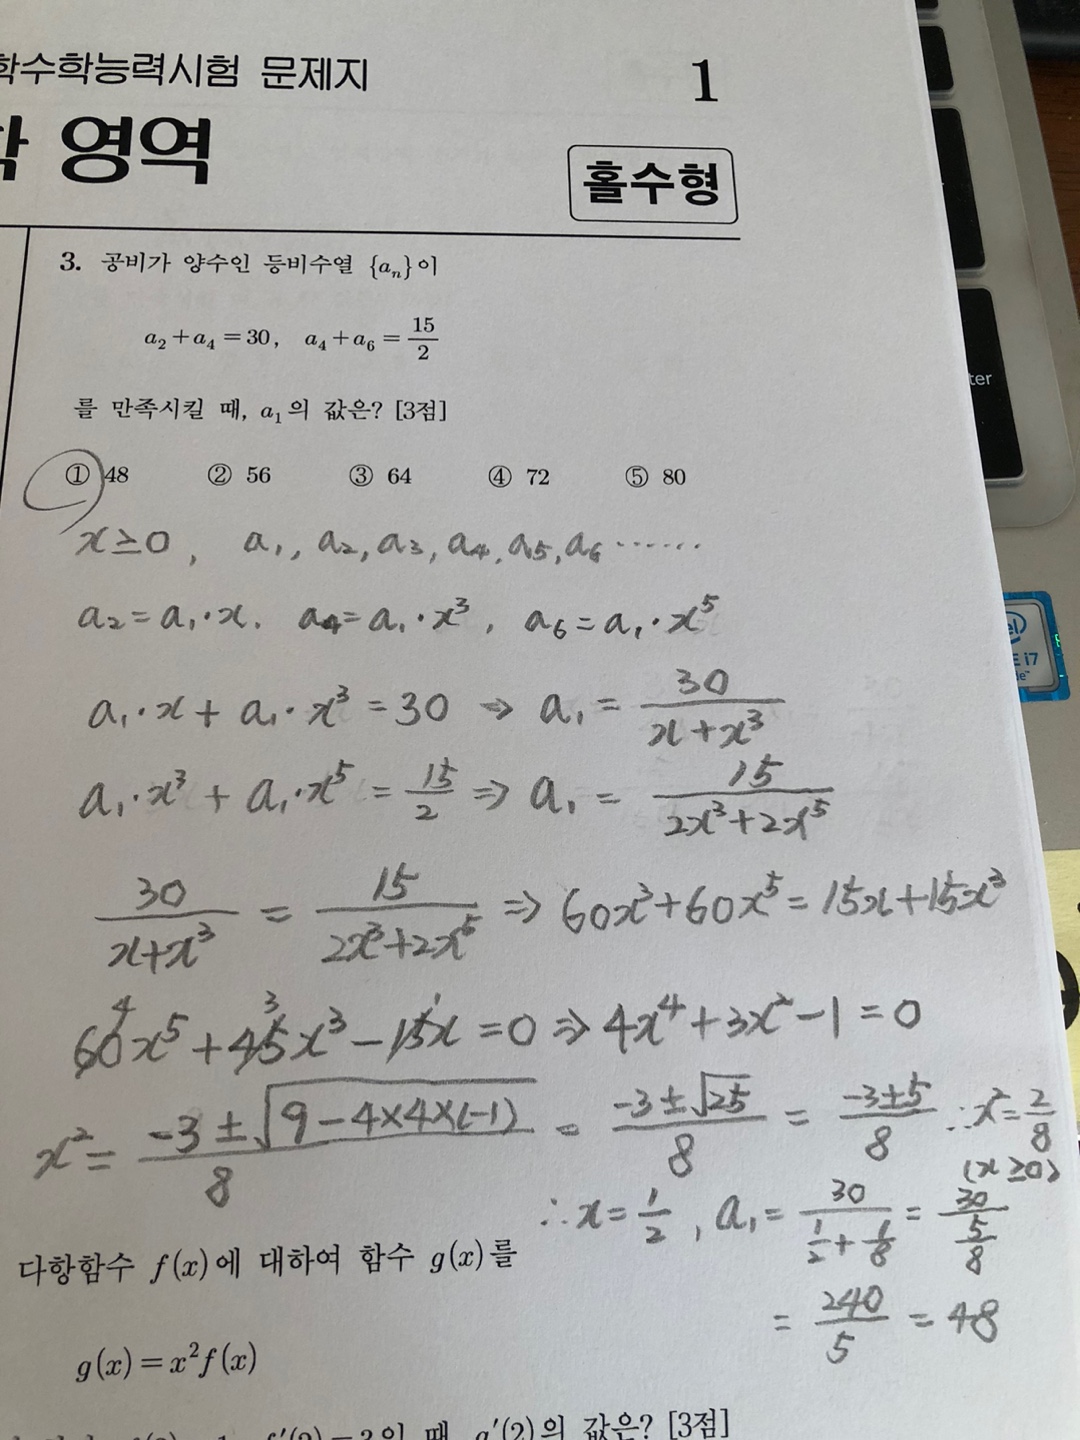 학수학능력시험 문제지
1
학 영역
홀수형
3. 공비가 양수인 등비수열 {aₙ}이
a₂+a₄=30, a₄+a₆=15/2
를 만족시킬 때, a₁의 값은? [3점]
① 48 ② 56 ③ 64 ④ 72 ⑤ 80
x≥0, a₁, a₂, a₃, a₄, a₅, a₆ ······
a₂=a₁·x. a₄=a₁·x³, a₆=a₁·x⁵
a₁·x+a₁·x³=30 ⇒ a₁=30/(x+x³)
a₁·x³+a₁·x⁵=15/2 ⇒ a₁=15/(2x³+2x⁵)
30/(x+x³)=15/(2x³+2x⁵) ⇒ 60x³+60x⁵=15x+15x³
4 3 1
60x⁵+45x³-15x=0 ⇒ 4x⁴+3x²-1=0
x²=(-3±√(9-4×4×(-1)))/8=(-3±√25)/8=(-3±5)/8 ∴x²=2/8
(x≥0)
∴x=1/2, a₁=30/(1/2+1/8)=30/(5/8)
=240/5=48
다항함수 f(x)에 대하여 함수 g(x)를
g(x)=x²f(x)
f′(2)=3일 때, g′(2)의 값은? [3점]
ter
i7